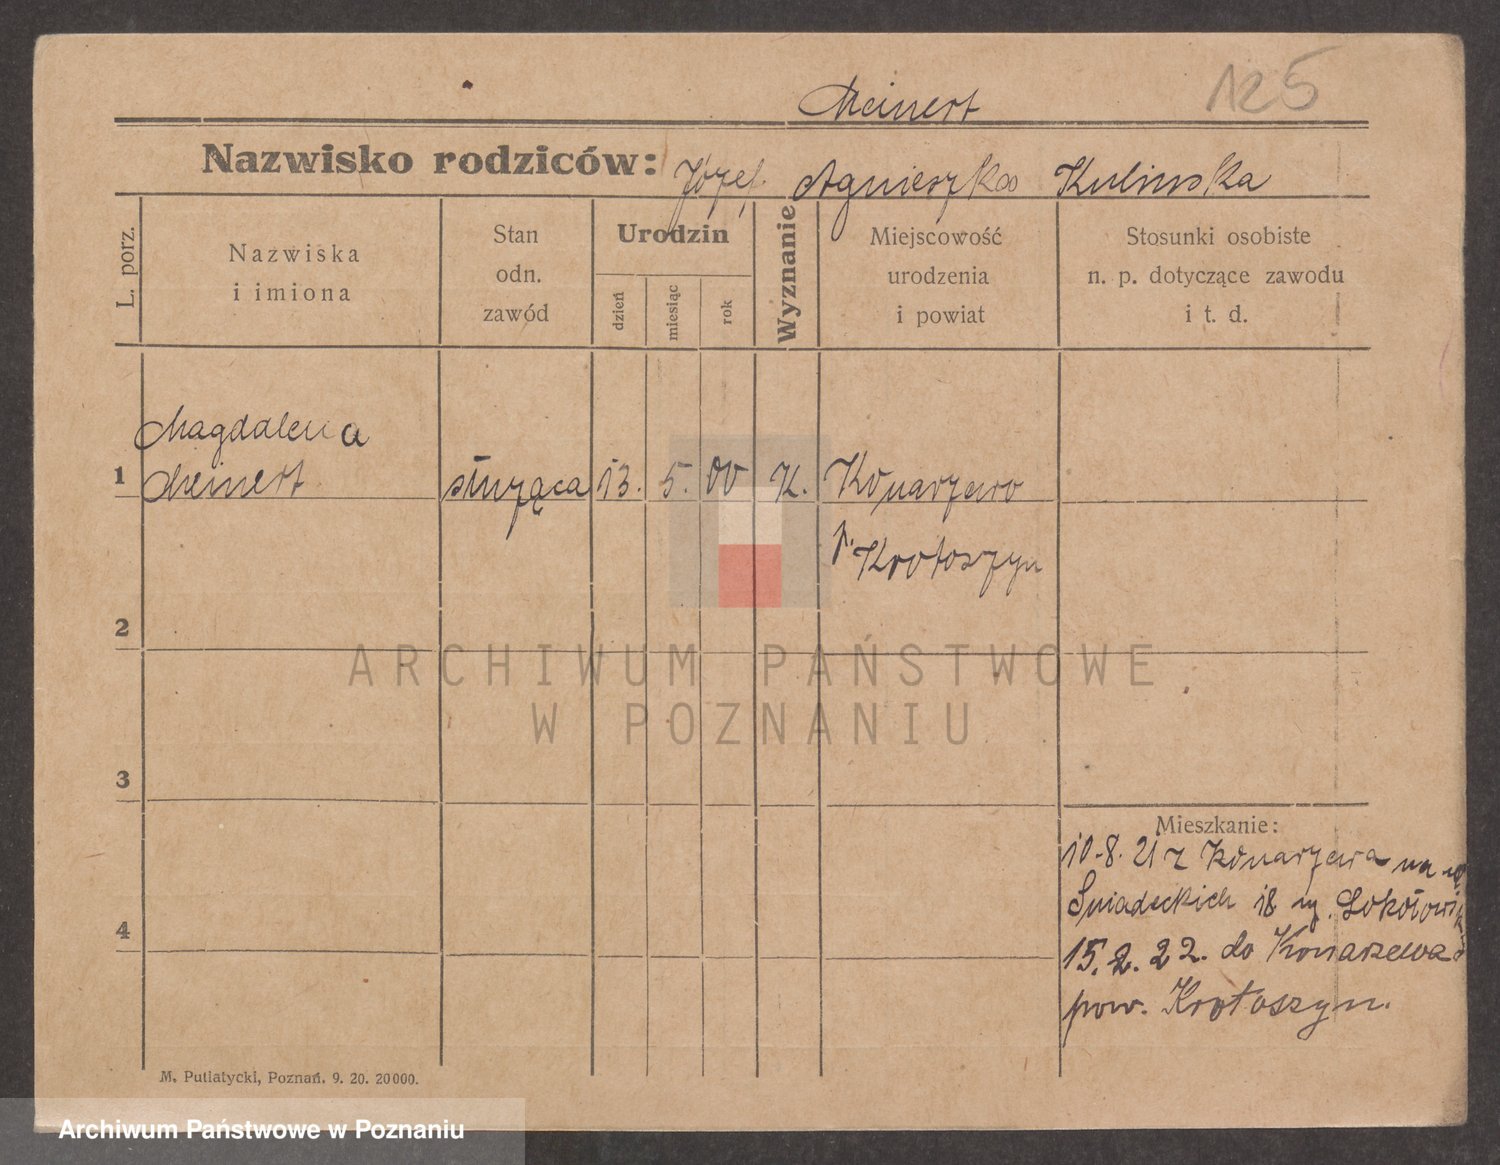 125
Meinert
Nazwisko rodziców: Józef Agnieszka Kulinska
L. porz.
Nazwiska
i imiona
Stan
odn.
zawód
Urodzin
dzień
miesiąc
rok
Wyznanie
Miejscowość
urodzenia
i powiat
Stosunki osobiste
n. p. dotyczące zawodu
i t. d.
Magdalena
1 Meinert służąca 13. 5. 00 K. Konarzewo
p. Krotoszyn
2
3
Mieszkanie:
10.8.21 z Konarzewa na ul.
4
Śniadeckich 18
15.2.22. do Konarzewa
pow. Krotoszyn.
M. Putiatycki, Poznań. 9. 20. 20000.
ARCHIWUM PAŃSTWOWE
W POZNANIU
Archiwum Państwowe w Poznaniu